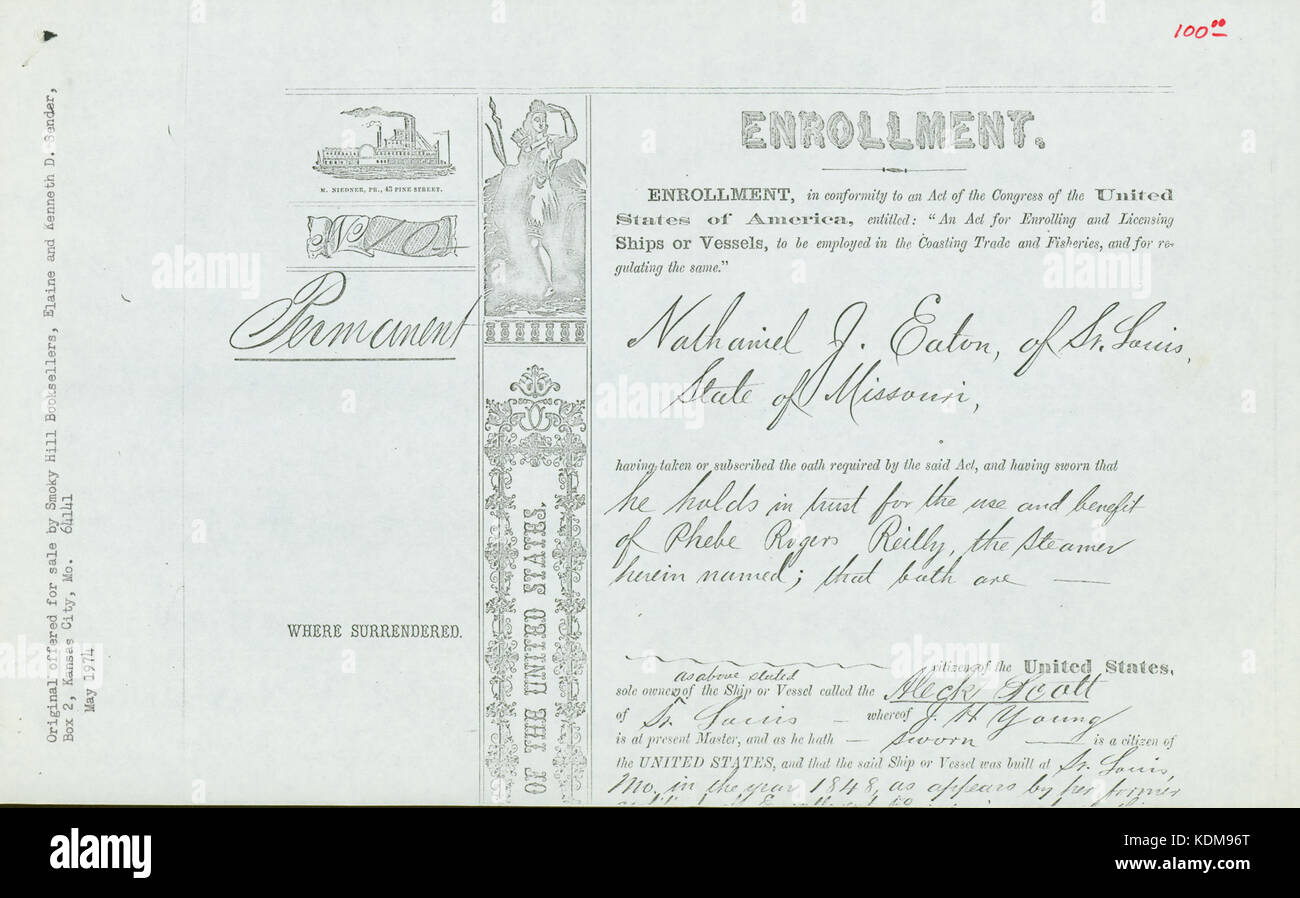 100⁰⁰
Original offered for sale by Smoky Hill Booksellers, Elaine and Kenneth D. Sender,
Box 2, Kansas City, Mo. 64141
May 1974
M. NIEDNER, PR., 43 PINE STREET.
No
Permanent
WHERE SURRENDERED.
OF THE UNITED STATES.
ENROLLMENT.
ENROLLMENT, in conformity to an Act of the Congress of the United
States of America, entitled: "An Act for Enrolling and Licensing
Ships or Vessels, to be employed in the Coasting Trade and Fisheries, and for re-
gulating the same."
Nathaniel J. Eaton, of St. Louis,
State of Missouri,
having taken or subscribed the oath required by the said Act, and having sworn that
he holds in trust for the use and benefit
of Phebe Rogers Reilly, the Steamer
herein named; that both are —
citizen of the United States,
as above stated
sole owner of the Ship or Vessel called the Aleck Scott
of St. Louis — whereof J. H. Young
is at present Master, and as he hath — sworn — is a citizen of
the UNITED STATES, and that the said Ship or Vessel was built at St. Louis,
Mo. in the year 1848, as appears by her former
alamy
Image ID: KDM96T
www.alamy.com